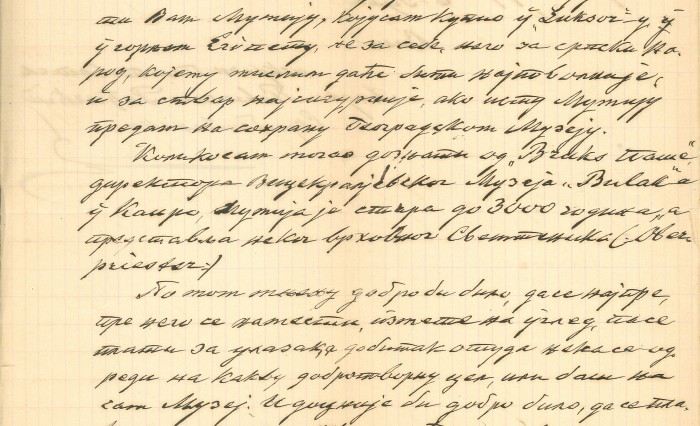 ти Вам Мумију, коју сам купио у „Luksor“-у, у
у горњем Египету, не за себе, него за српски на-
род, којему мислим да ће бити најповољније,
и за ствар најсигурније, ако исту Мумију
предам на сохрану Београдском Музеју.
Колико сам могао дознати од „Bruks паше“
директора Вицекраљевског Музеја „Bulak“ а
у Каиру, Мумија је стара до 3000 година, а
представља неког врховног Светеника (:Ober-
priester:)
По мом мњењу добро би било, да се најпре,
пре него се намести, изметне на углед, па се
плати за улазак, а добитак отуда нека се од-
реди на какву добротворну цел, или баш на
сам Музеј. И доцније би добро било, да се пла-